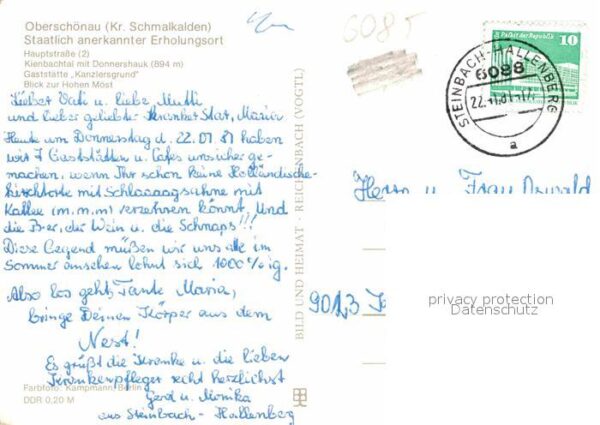 Oberschönau (Kr. Schmalkalden)
Staatlich anerkannter Erholungsort
Hauptstraße (2)
Kienbachtal mit Donnershauk (894 m)
Gaststätte „Kanzlersgrund"
Blick zur Hohen Most
Lieber Vati u. liebe Mutti
und lieber geliebter Star, Maria
Heute am Donnerstag d. 22.01.81 haben
wir 7 Gaststätten u. Cafes unsicher ge-
machen, wenn Ihr schon keine Holländische-
kirschtorte mit Schlaaaagsahne mit
Kaffee (m.m.m) verzehren könnt. Und
die Bier, der Wein u. die Schnaps!!!
Diese Gegend müßen wir uns alle im
Sommer ansehen lohnt sich 1000%ig.
Also los gehts Tante Maria,
bringe Deinen Körper aus dem
Nest!
Es grüßt die Kranke u. die lieben
Krankenpfleger recht herzlichst
Gerd u. Monika
aus Steinbach-Hallenberg
Farbfoto: Kampmann, Berlin
DDR 0,20 M
BILD UND HEIMAT · REICHENBACH (VOGTL)
Palast der Republik 10
STEINBACH-HALLENBERG
6098
a
Herrn u. Frau
9013
privacy protection
Datenschutz